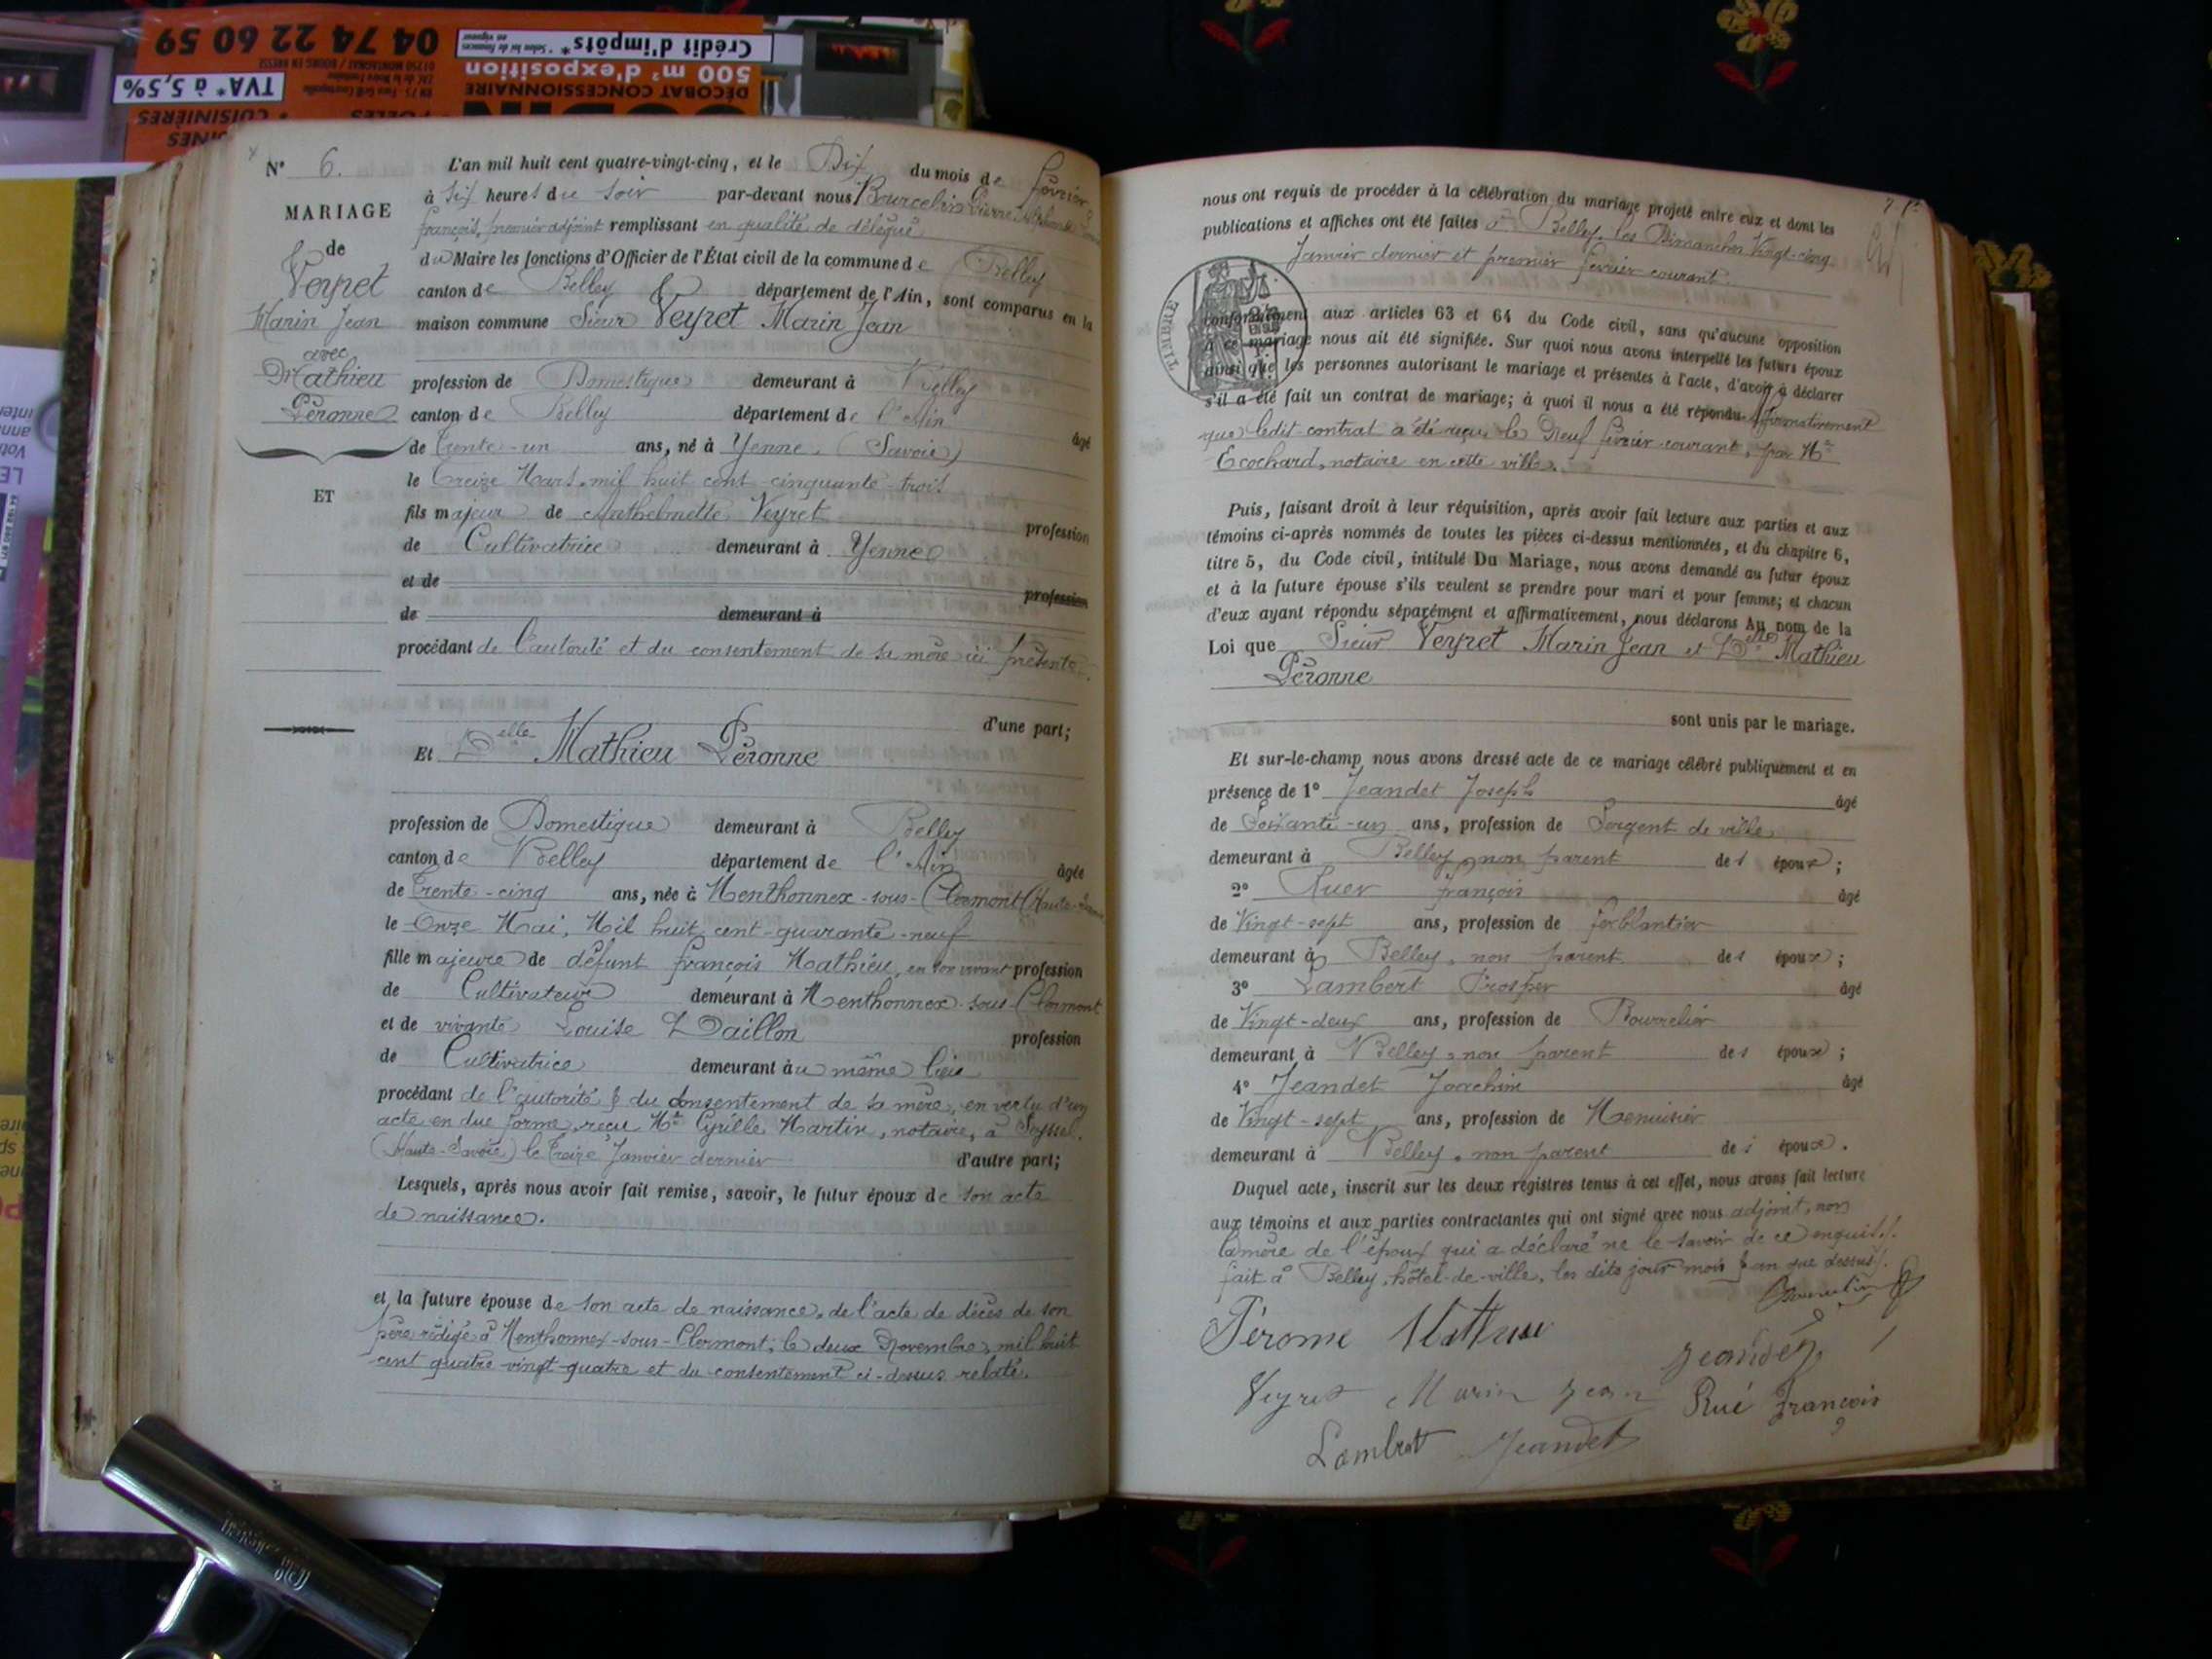 04 74 22 60 59
Crédit d'impôts*
* Selon loi de finances en vigueur
01250 MONTAGNAT / BOURG EN BRESSE
500 m² d'exposition
TVA* à 5,5%
DÉCOBAT CONCESSIONNAIRE
CUISINIÈRES
N° 6.
MARIAGE
de
Veyret
Marin Jean
avec
Mathieu
Péronne
ET
L'an mil huit cent quatre-vingt-cinq, et le Dix du mois de février
à six heures du soir par-devant nous Bourcelin Pierre
françois, premier adjoint remplissant en qualité de délégué
du Maire les fonctions d'Officier de l'État civil de la commune de Belley
canton de Belley département de l'Ain, sont comparus en la
maison commune Sieur Veyret Marin Jean
profession de Domestique demeurant à Belley
canton de Belley département de l'Ain âgé
de trente-un ans, né à Yenne, (Savoie)
le treize Mars, mil huit cent cinquante-trois
fils majeur de Anthelmette Veyret profession
de Cultivatrice demeurant à Yenne
et de profession
de demeurant à
procédant de l'autorité et du consentement de sa mère ici présente
d'une part;
Et Delle Mathieu Péronne
profession de Domestique demeurant à Belley
canton de Belley département de l'Ain âgée
de trente-cinq ans, née à Menthonnex-sous-Clermont (Haute-Savoie
le Onze Mai, Mil huit cent-quarante-neuf
fille majeure de défunt françois Mathieu, en son vivant profession
de Cultivateur demeurant à Menthonnex-sous-Clermont
et de vivante Louise Daillon profession
de Cultivatrice demeurant au même lieu
procédant de l'autorité & du consentement de sa mère, en vertu d'un
acte en due forme, reçu Me Cyrille Martin, notaire, à Seyssel.
(Haute-Savoie) le treize Janvier dernier d'autre part;
Lesquels, après nous avoir fait remise, savoir, le futur époux de son acte
de naissance.
et la future épouse de son acte de naissance, de l'acte de décès de son
père rédigé à Menthonnex-sous-Clermont, le deux Novembre, mil huit
cent quatre-vingt-quatre et du consentement ci-dessus relaté.
nous ont requis de procéder à la célébration du mariage projeté entre eux et dont les
publications et affiches ont été faites à Belley, les Dimanches Vingt-cinq
Janvier dernier et premier février courant.
TIMBRE
conformément aux articles 63 et 64 du Code civil, sans qu'aucune opposition
à ce mariage nous ait été signifiée. Sur quoi nous avons interpellé les futurs époux
ainsi que les personnes autorisant le mariage et présentes à l'acte, d'avoir à déclarer
s'il a été fait un contrat de mariage; à quoi il nous a été répondu affirmativement
que ledit contrat a été reçu le Neuf février courant, par Me
Ecochard, notaire en cette ville.
Puis, faisant droit à leur réquisition, après avoir fait lecture aux parties et aux
témoins ci-après nommés de toutes les pièces ci-dessus mentionnées, et du chapitre 6,
titre 5, du Code civil, intitulé Du Mariage, nous avons demandé au futur époux
et à la future épouse s'ils veulent se prendre pour mari et pour femme; et chacun
d'eux ayant répondu séparément et affirmativement, nous déclarons Au nom de la
Loi que Sieur Veyret Marin Jean et Delle Mathieu
Péronne
sont unis par le mariage.
Et sur-le-champ nous avons dressé acte de ce mariage célébré publiquement et en
présence de 1° Jeandet Joseph âgé
de Soixante-un ans, profession de Sergent de ville
demeurant à Belley, non parent des époux;
2° Ruer françois âgé
de Vingt-sept ans, profession de ferblantier
demeurant à Belley, non parent des époux;
3° Lambert Prosper âgé
de Vingt-deux ans, profession de Bourrelier
demeurant à Belley, non parent des époux;
4° Jeandet Joachim âgé
de Vingt-sept ans, profession de Menuisier
demeurant à Belley, non parent des époux.
Duquel acte, inscrit sur les deux registres tenus à cet effet, nous avons fait lecture
aux témoins et aux parties contractantes qui ont signé avec nous adjoint, non
la mère de l'époux qui a déclaré ne le savoir de ce enquis.
fait à Belley, hôtel-de-ville, les dits jour mois & an que dessus.
Pérome Mathieu
Jeandet
Veyret Marin Jean Rué françois
Lambert Jeandet